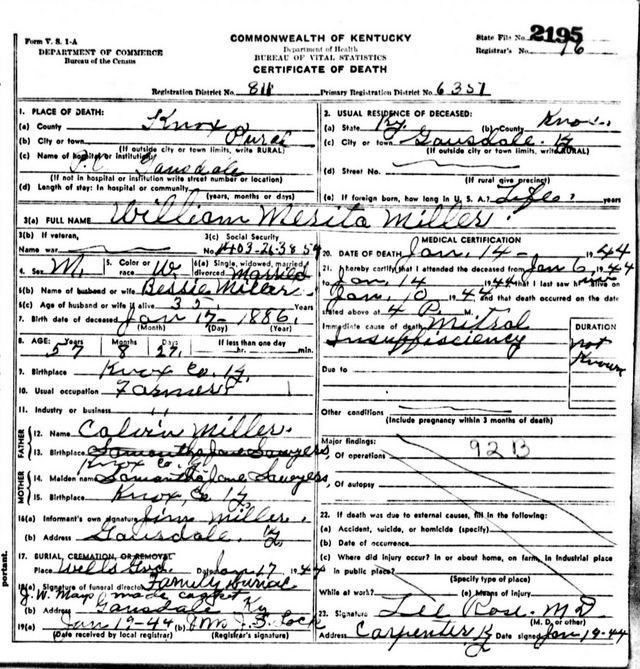 Form V. S. 1-A
DEPARTMENT OF COMMERCE
Bureau of the Census
COMMONWEALTH OF KENTUCKY
Department of Health
BUREAU OF VITAL STATISTICS
CERTIFICATE OF DEATH
State File No. 2195
Registrar's No. 76
Registration District No. 811 Primary Registration District No. 6351
1. PLACE OF DEATH:
(a) County Knox
(b) City or town Rural
(If outside city or town limits, write RURAL)
(c) Name of hospital or institution:
Gausdale
(If not in hospital or institution write street number or location)
(d) Length of stay: In hospital or community
(years, months or days)
2. USUAL RESIDENCE OF DECEASED:
(a) State Ky. (b) County Knox
(c) City or town Gausdale Ky
(If outside city or town limits, write RURAL)
(d) Street No.
(If rural give precinct)
(e) If foreign born, how long in U. S. A.? Life. years
3(a) FULL NAME William Mesita Miller.
3(b) If veteran,
Name war
3(c) Social Security
No. 403-26-3859
4. Sex M. 5. Color or race W. 6(a) Single, widowed, married, divorced Married
6(b) Name of husband or wife Bessie Miller
6(c) Age of husband or wife if alive 35 Years
7. Birth date of deceased Jan 17-1886.
(Month) (Day) (Year)
8. AGE: Years Months Days If less than one day
57 8 27 hr. min.
9. Birthplace Knox Co. Ky.
10. Usual occupation Farmer
11. Industry or business "
FATHER
12. Name Calvin Miller.
13. Birthplace Samantha Jane Sawyers
Knox Co. Ky.
MOTHER
14. Maiden name Samantha Jane Sawyers
15. Birthplace Knox, Co Ky.
16(a) Informant's own signature Jim Miller.
(b) Address Gausdale. Ky
17. BURIAL, CREMATION, OR REMOVAL
Place Wells Grd. Date Jan 17 1944
18(a) Signature of funeral director Family Burial
J. W. Mays made casket
(b) Address Gausdale Ky
19(a) Jan 19-44 (b) Mrs J. B. Cock
(Date received by local registrar) (Registrar's signature)
MEDICAL CERTIFICATION
20. DATE OF DEATH Jan, 14- 1944
21. I hereby certify that I attended the deceased from Jan 6, 1944
to Jan 14 1944 that I last saw him alive on
Jan, 10 1944 and that death occurred on the date
stated above at 4 P. M.
Immediate cause of death Mitral
Insufficiency
DURATION
not
Known
Due to
Other conditions
(Include pregnancy within 3 months of death)
Major findings: 92 B
Of operations
Of autopsy
22. If death was due to external causes, fill in the following:
(a) Accident, suicide, or homicide (specify)
(b) Date of occurrence
(c) Where did injury occur? In or about home, on farm, in industrial place
in public place?
(Specify type of place)
While at work? (e) Means of injury
23. Signature Lee Rose. MD
(M. D. or other)
Address Carpenter Ky Date signed Jan, 19-44
portant.